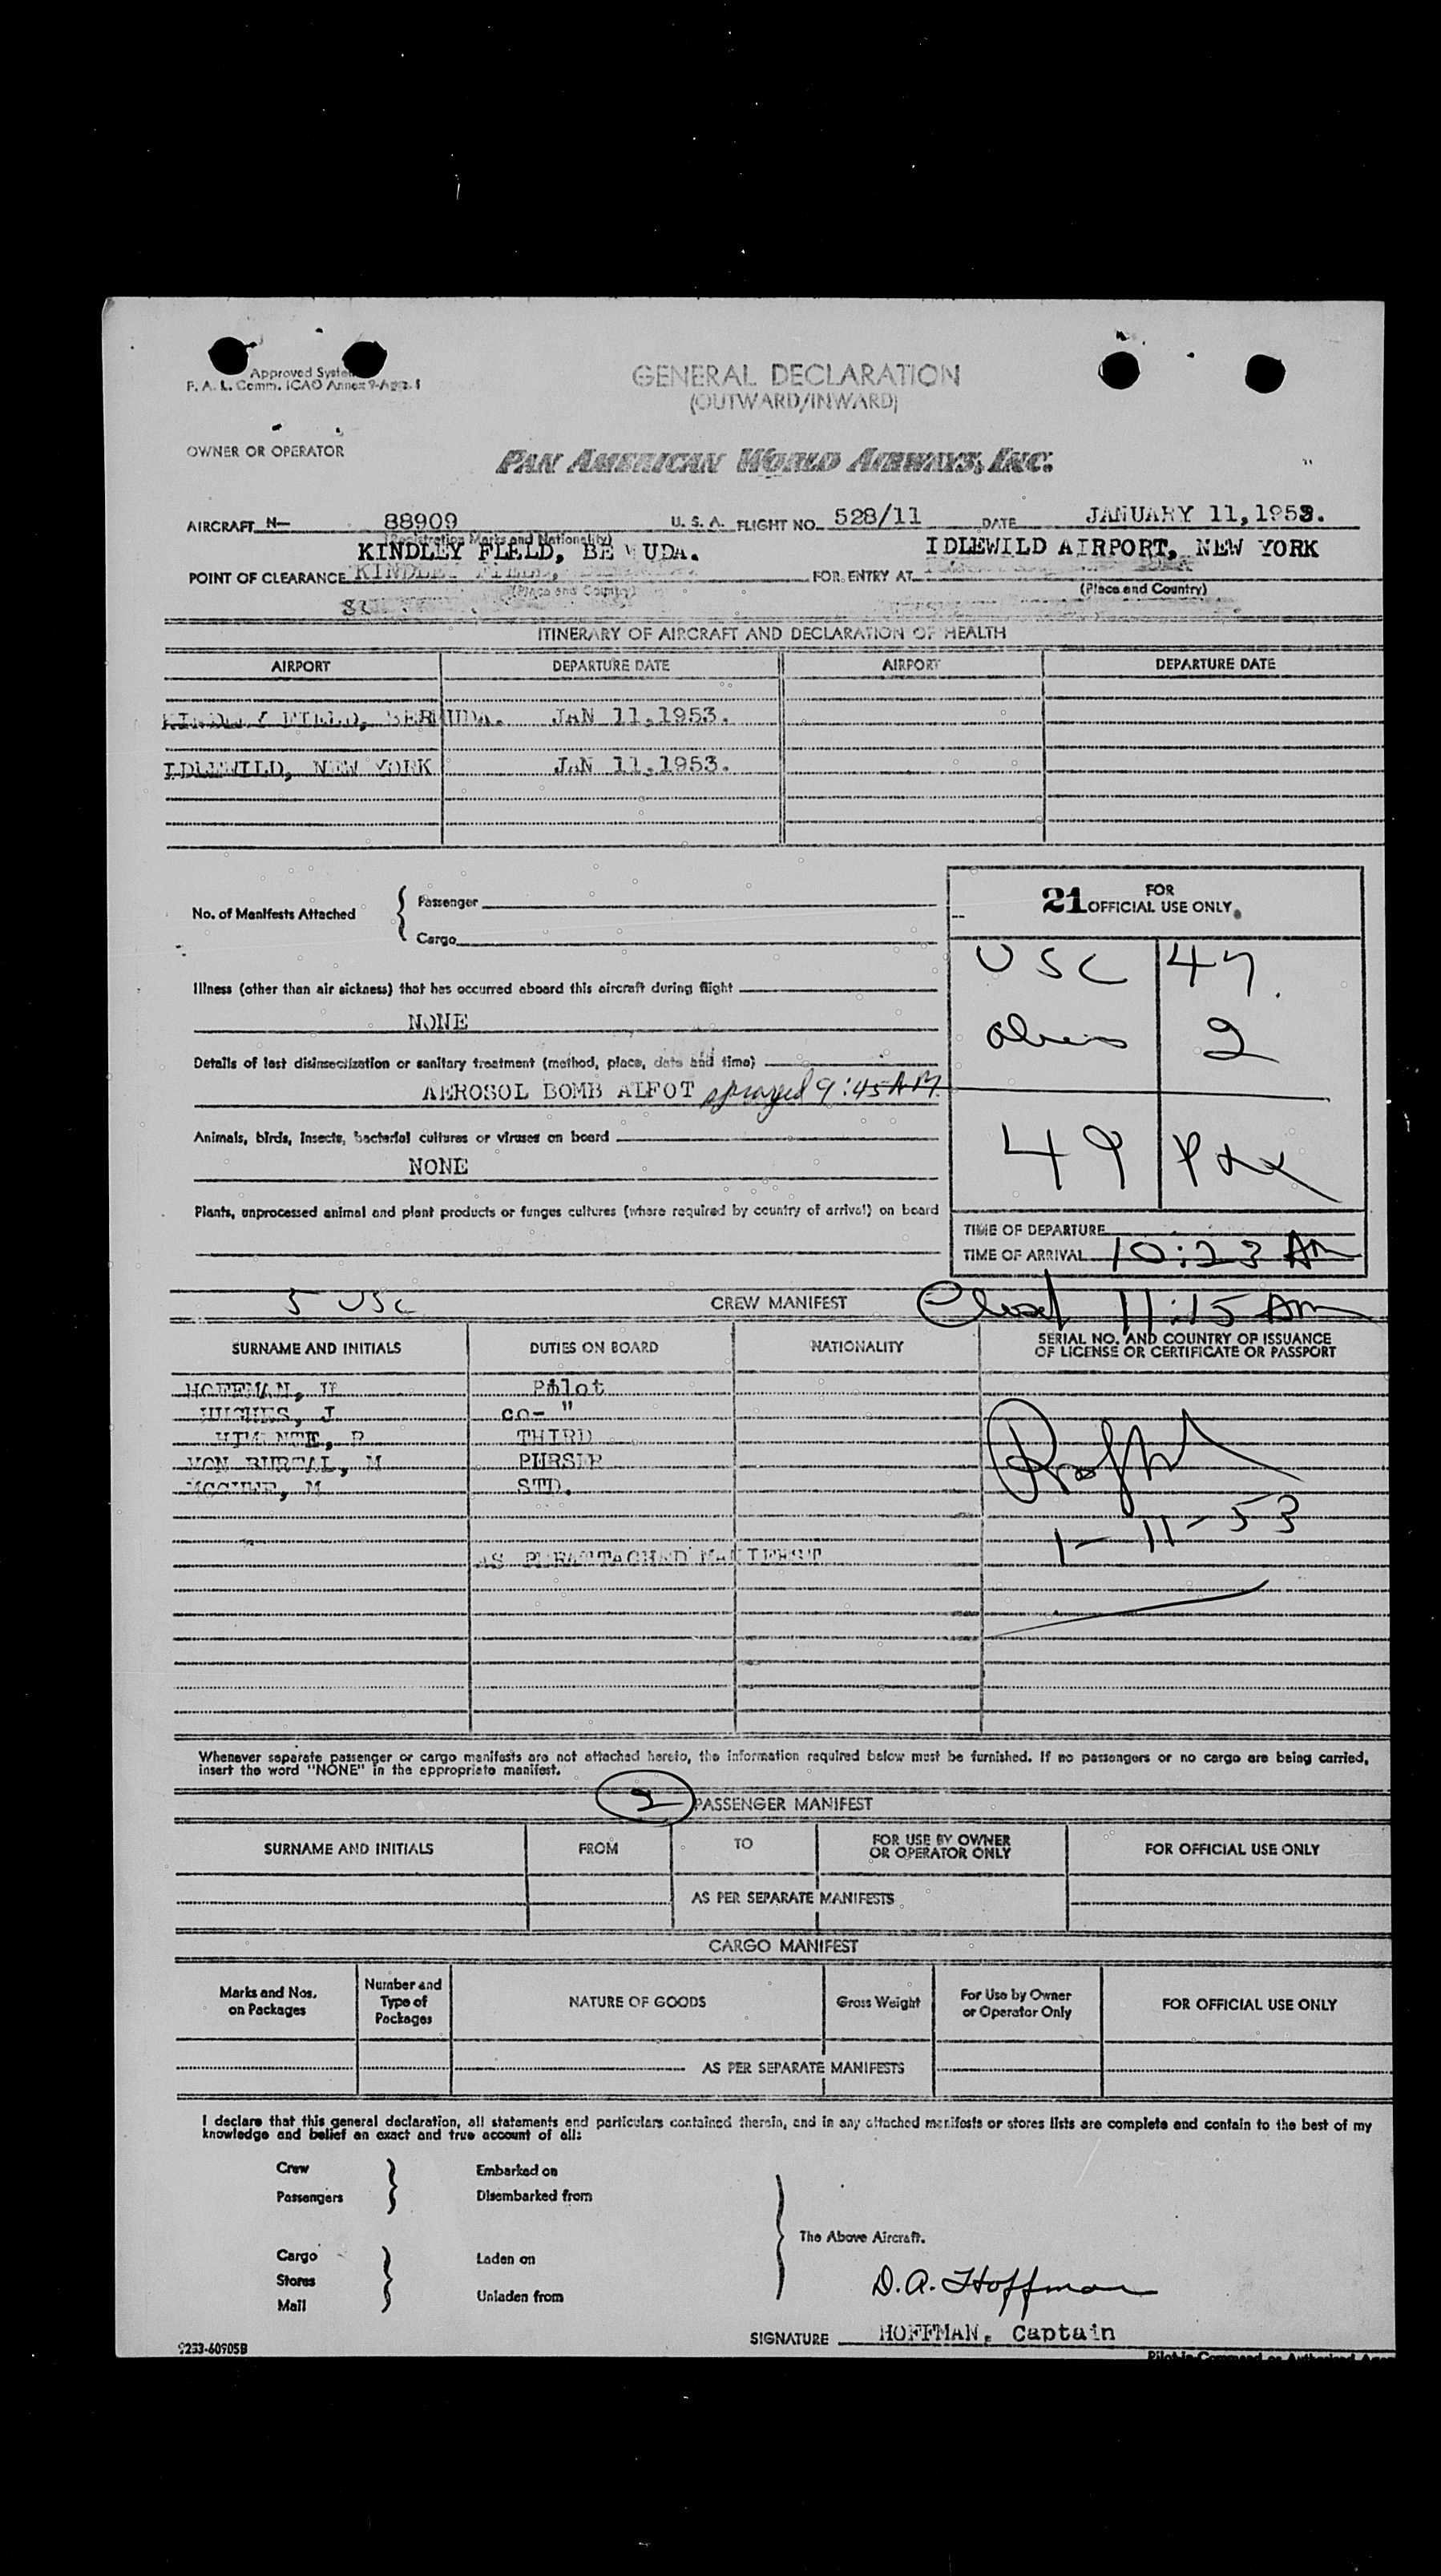 Approved System
F. A. L. Comm. ICAO Annex 9-Appx. 1
GENERAL DECLARATION
(OUTWARD/INWARD)
OWNER OR OPERATOR
PAN AMERICAN WORLD AIRWAYS, INC.
AIRCRAFT N- 88909 U. S. A. FLIGHT NO. 528/11 DATE JANUARY 11, 1953.
(Registration Marks and Nationality)
KINDLEY FIELD, BE UDA. IDLEWILD AIRPORT, NEW YORK
POINT OF CLEARANCE KINDLEY FIELD, FOR ENTRY AT
(Place and Country) (Place and Country)
ITINERARY OF AIRCRAFT AND DECLARATION OF HEALTH
AIRPORT DEPARTURE DATE AIRPORT DEPARTURE DATE
KINDLEY FIELD, BERMUDA. JAN 11,1953.
IDLEWILD, NEW YORK JAN 11,1953.
No. of Manifests Attached { Passenger
Cargo
21 FOR OFFICIAL USE ONLY
USC 47
aliens 2
49 Pax
TIME OF DEPARTURE
TIME OF ARRIVAL 10:23 AM
Illness (other than air sickness) that has occurred aboard this aircraft during flight
NONE
Details of last disinsectization or sanitary treatment (method, place, date and time)
AEROSOL BOMB ALFOT sprayed 9:45AM.
Animals, birds, insects, bacterial cultures or viruses on board
NONE
Plants, unprocessed animal and plant products or fungus cultures (where required by country of arrival) on board
5 USC CREW MANIFEST Closed 11:15 AM
SURNAME AND INITIALS DUTIES ON BOARD NATIONALITY SERIAL NO. AND COUNTRY OF ISSUANCE
OF LICENSE OR CERTIFICATE OR PASSPORT
HOFFMAN, Pilot
HUGHES, J co- "
THIRD
VON BURTAL, M PURSER
MCGHEE, M STD.
1-11-53
AS PER ATTACHED MANIFEST
Whenever separate passenger or cargo manifests are not attached hereto, the information required below must be furnished. If no passengers or no cargo are being carried,
insert the word "NONE" in the appropriate manifest.
2 PASSENGER MANIFEST
SURNAME AND INITIALS FROM TO FOR USE BY OWNER
OR OPERATOR ONLY FOR OFFICIAL USE ONLY
AS PER SEPARATE MANIFESTS
CARGO MANIFEST
Marks and Nos.
on Packages Number and
Type of
Packages NATURE OF GOODS Gross Weight For Use by Owner
or Operator Only FOR OFFICIAL USE ONLY
AS PER SEPARATE MANIFESTS
I declare that this general declaration, all statements and particulars contained therein, and in any attached manifests or stores lists are complete and contain to the best of my
knowledge and belief an exact and true account of all:
Crew Embarked on
Passengers Disembarked from
The Above Aircraft.
Cargo Laden on
Stores
Mail Unladen from
D. A. Hoffman
SIGNATURE HOFFMAN, Captain
9233-60905B Pilot in Command or Authorized Agent